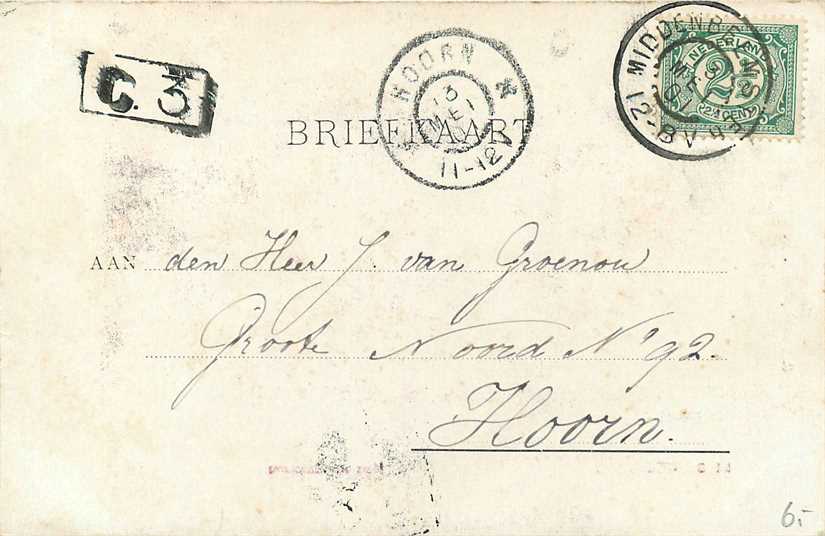 C. 3
HOORN
3 MEI
11-12V
MIDDENBEEMSTER
12-8V
NEDERLAND
2½
2½ CENT
BRIEFKAART
AAN den Heer J. van Groenou
Groote Noord No 92.
Hoorn.
6.-